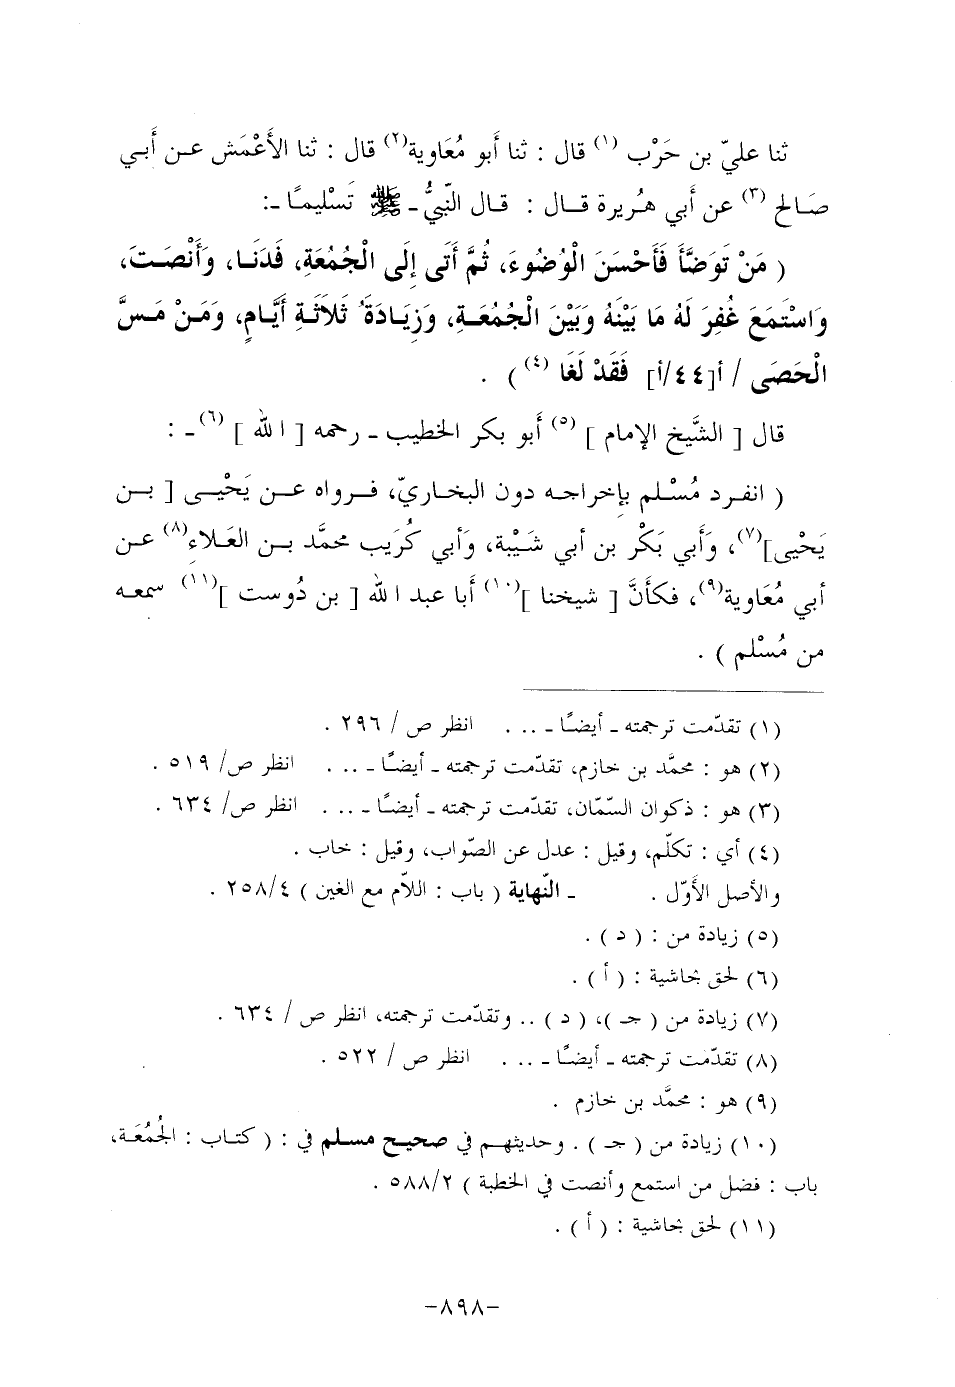 ثنا عليّ بن حَرْب (١) قال : ثنا أبو مُعَاوية(٢) قال : ثنا الأَعْمَش عن أَبي
صَالح (٣) عن أَبي هُريرة قال : قال النّبيُّ ـ ﷺ تَسْليمًا ـ:
( مَنْ تَوَضَّأَ فَأَحْسَنَ الْوُضُوءَ، ثُمَّ أَتَى إِلَى الْجُمُعَة، فَدَنَا، وَأَنْصَتَ،
وَاسْتَمَعَ غُفِرَ لَهُ مَا بَيْنَهُ وَبَيْنَ الْجُمُعَةِ، وَزِيَادَةُ ثَلاَثَةِ أَيَّامٍ، وَمَنْ مَسَّ
الْحَصَى / أ[٤٤/أ] فَقَدْ لَغَا (٤) ) .
قال [ الشَّيخ الإمام ] (٥) أَبو بكر الخطيب ـ رحمه [ الله ] (٦) ـ :
( انفرد مُسْلم بإخراجه دون البخاريّ، فرواه عن يَحْيى [ بن
يَحْيى](٧)، وَأَبي بَكْر بن أبي شَيْبة، وَأبي كُرَيب محمَّد بن العَلاءِ(٨) عن
أبي مُعَاوية(٩)، فكأَنَّ [ شيخنا ](١٠) أبا عبد الله [ بن دُوست ](١١) سمعه
من مُسْلم ) .
(١) تقدّمت ترجمته ـ أيضًا ـ ... . انظر ص / ٢٩٦ .
(٢) هو : محمَّد بن خازم، تقدّمت ترجمته ـ أيضًا ـ ... . انظر ص/ ٥١٩ .
(٣) هو : ذكوان السّمّان، تقدّمت ترجمته ـ أيضًا ـ ... . انظر ص/ ٦٣٤ .
(٤) أي : تكلّم، وقيل : عدل عن الصّواب، وقيل : خاب .
والأصل الأَوّل . ـ النّهاية ( باب : اللاّم مع الغين ) ٢٥٨/٤ .
(٥) زيادة من : ( د ) .
(٦) لحق بحاشية : ( أ ) .
(٧) زيادة من ( جـ )، ( د ) .. وتقدّمت ترجمته، انظر ص / ٦٣٤ .
(٨) تقدّمت ترجمته ـ أيضًا ـ ... . انظر ص / ٥٢٢ .
(٩) هو : محمَّد بن خازم .
(١٠) زيادة من ( جـ ) . وحديثهم في صحيح مسلم في : ( كتاب : الجُمُعَة،
باب : فضل من استمع وأنصت في الخطبة ) ٥٨٨/٢ .
(١١) لحق بحاشية : ( أ ) .
-٨٩٨-